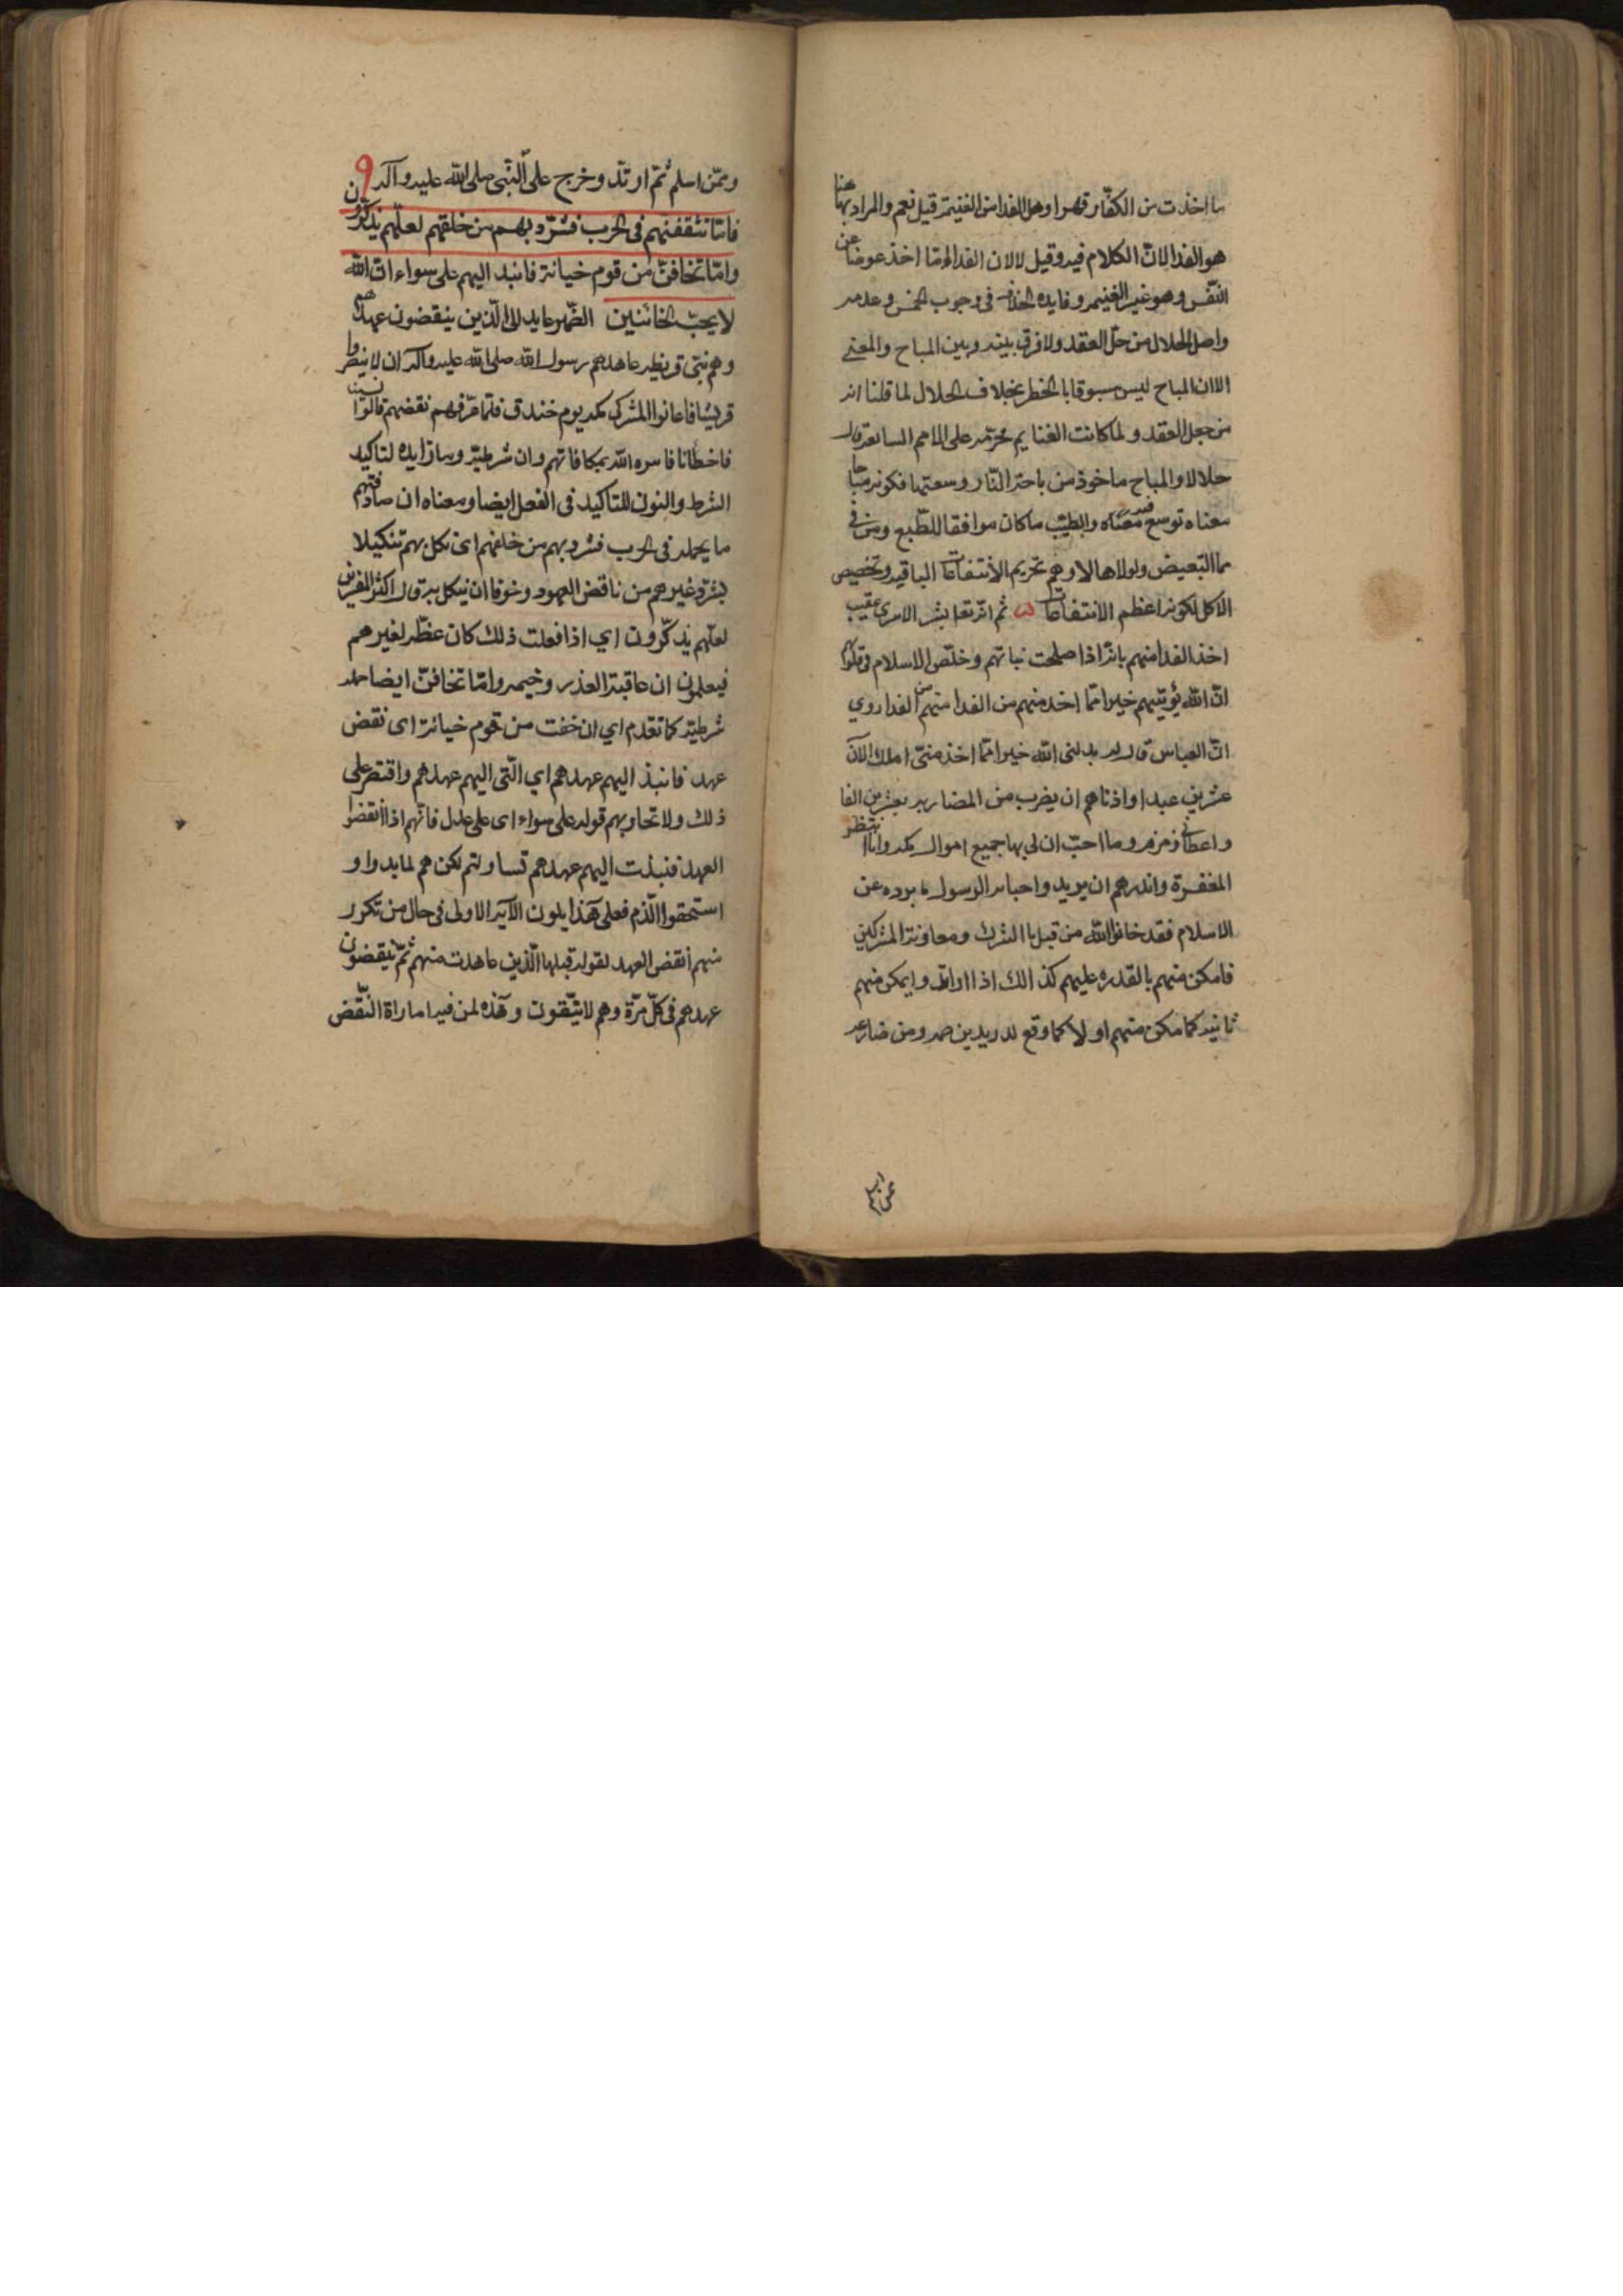 ما اخذت من الكفار قهرا وهل الفدا من الغنيمة قيل نعم والمراد بها هنا
هو الفدا لانّ الكلام فيه وقيل لا لان الفدا انما اخذ عوضا عن
النّفس وهو غير الغنيمه وفايده الخلاف في وجوب الخمس وعدمه
واصل الحلال من حلّ العقد ولا فرق بينه وبين المباح والمعنى
الا ان المباح ليس مسبوقا بالخطر بخلاف الحلال لما قلنا انه
من حل العقد ولما كانت الغنايم محرّمه على الامم السابقه قال
حلالا والمباح ماخوذ من باحة الدار وسعتها فكونه مباحا
معناه توسع فيه والطيّب ما كان موافقا للطّبع ومن في
مما التبعيض ولولاها لاوهم تحريم الأنتفاعات الباقيه وتخصيص
الاكل لكونه اعظم الانتفاعات ثم انّه تعا بشر الاسرى عقيب
اخذ الفدا منهم بانّه اذا صلحت نياتهم وخلّص الاسلام في قلوبهم
انّ الله يؤتيهم خيرا ممّا اخذ منهم من الفدا روي
انّ العباس قال ابدلنى الله خيرا ممّا اخذ منّي املك الآن
عشرين عبدا وادناهم ان يضرب من المضاربه بعشرين الفا
واعطانى زمزم وما احبّ ان لى بها جميع اموال مكه وانا انتظر
المغفرة وانذرهم ان يريدوا خيانه الرسول عن
الاسلام فقد خانوا الله من قبل باالشرك ومعاونة المشركين
فامكن منهم بالقدره عليهم كذالك اذا ارادوا يمكن منهم
ثانيه كما مكن منهم اولا كما وقع لدريد بن صمه ومن ضارعه
وممّن اسلم ثمّ ارتدّ وخرج على النّبى صلى الله عليه وآله و
فامّا تثقفنهم فى الحرب فشرّد بهم من خلفهم لعلّهم يذكّرون
وامّا تخافنّ من قوم خيانة فانبذ اليهم على سواء انّ الله
لا يحبّ الخائنين الضّمير عايد الى الّذين ينقضون عهدهم
وهم بنى قريظه عاهدهم رسول الله صلى الله عليه وآله ان لا ينصروا
قريشا فاعانوا المشركى مكه يوم خندق فلمّا عرّفهم نقضهم قالوا نسينا
فاخطأنا فامره الله بمكافاتهم وان شرطيّه وما زايده لتاكيد
الشرط والنون للتاكيد فى الفعل ايضا ومعناه ان صادفتهم
ما يحمله فى الحرب فشرد بهم من خلفهم اى نكل بهم تنكيلا
يشرّد غيرهم من ناقض العهود وخوفا ان ينكل به قال اكثر المفسّرين
لعلّهم يذكّرون اي اذا فعلت ذلك كان عظه لغيرهم
فيعلمون ان عاقبة الغدر وخيمه وامّا تخافنّ ايضا جمله
شرطيّه كما تقدم اي ان خفت من قوم خيانة اى نقض
عهد فانبذ اليهم عهدهم اي الّتى اليهم عهدهم واقتصر على
ذلك ولا تحاربهم قوله على سواء اى على عدل فانّهم اذا انقضوا
العهد فنبذت اليهم عهدهم تساويتم لكن هم لما بدوا و
استحقوا الّذم فعلى هذا يكون الآيه الاولى فى حال من تكرر
منهم نقض العهد لقوله قبلها الّذين عاهدت منهم ثمّ ينقضون
عهدهم فى كلّ مرّة وهم لا يتّقون وهذه لمن فيه اماراة النّقض